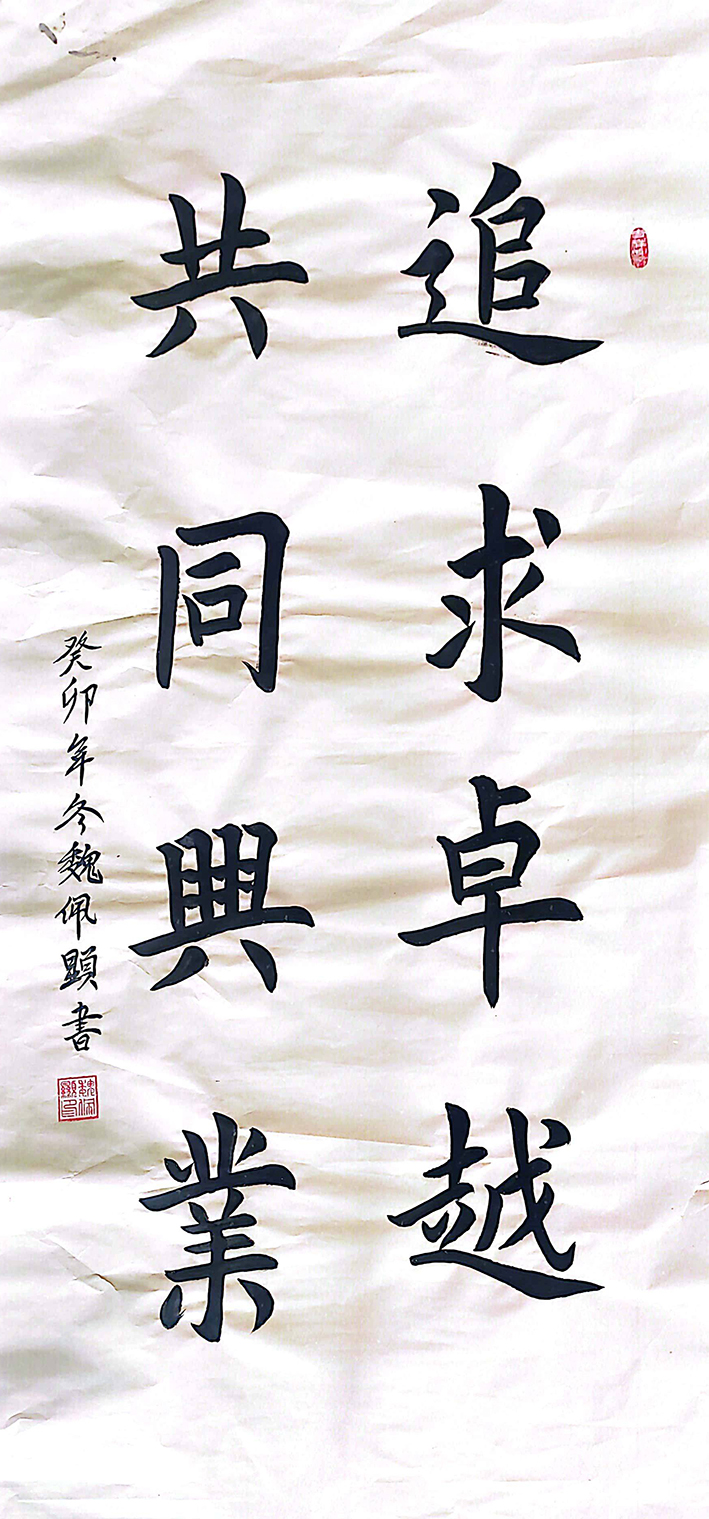 追求卓越
共同興業
癸卯年冬魏佩顯書
魏佩顯印